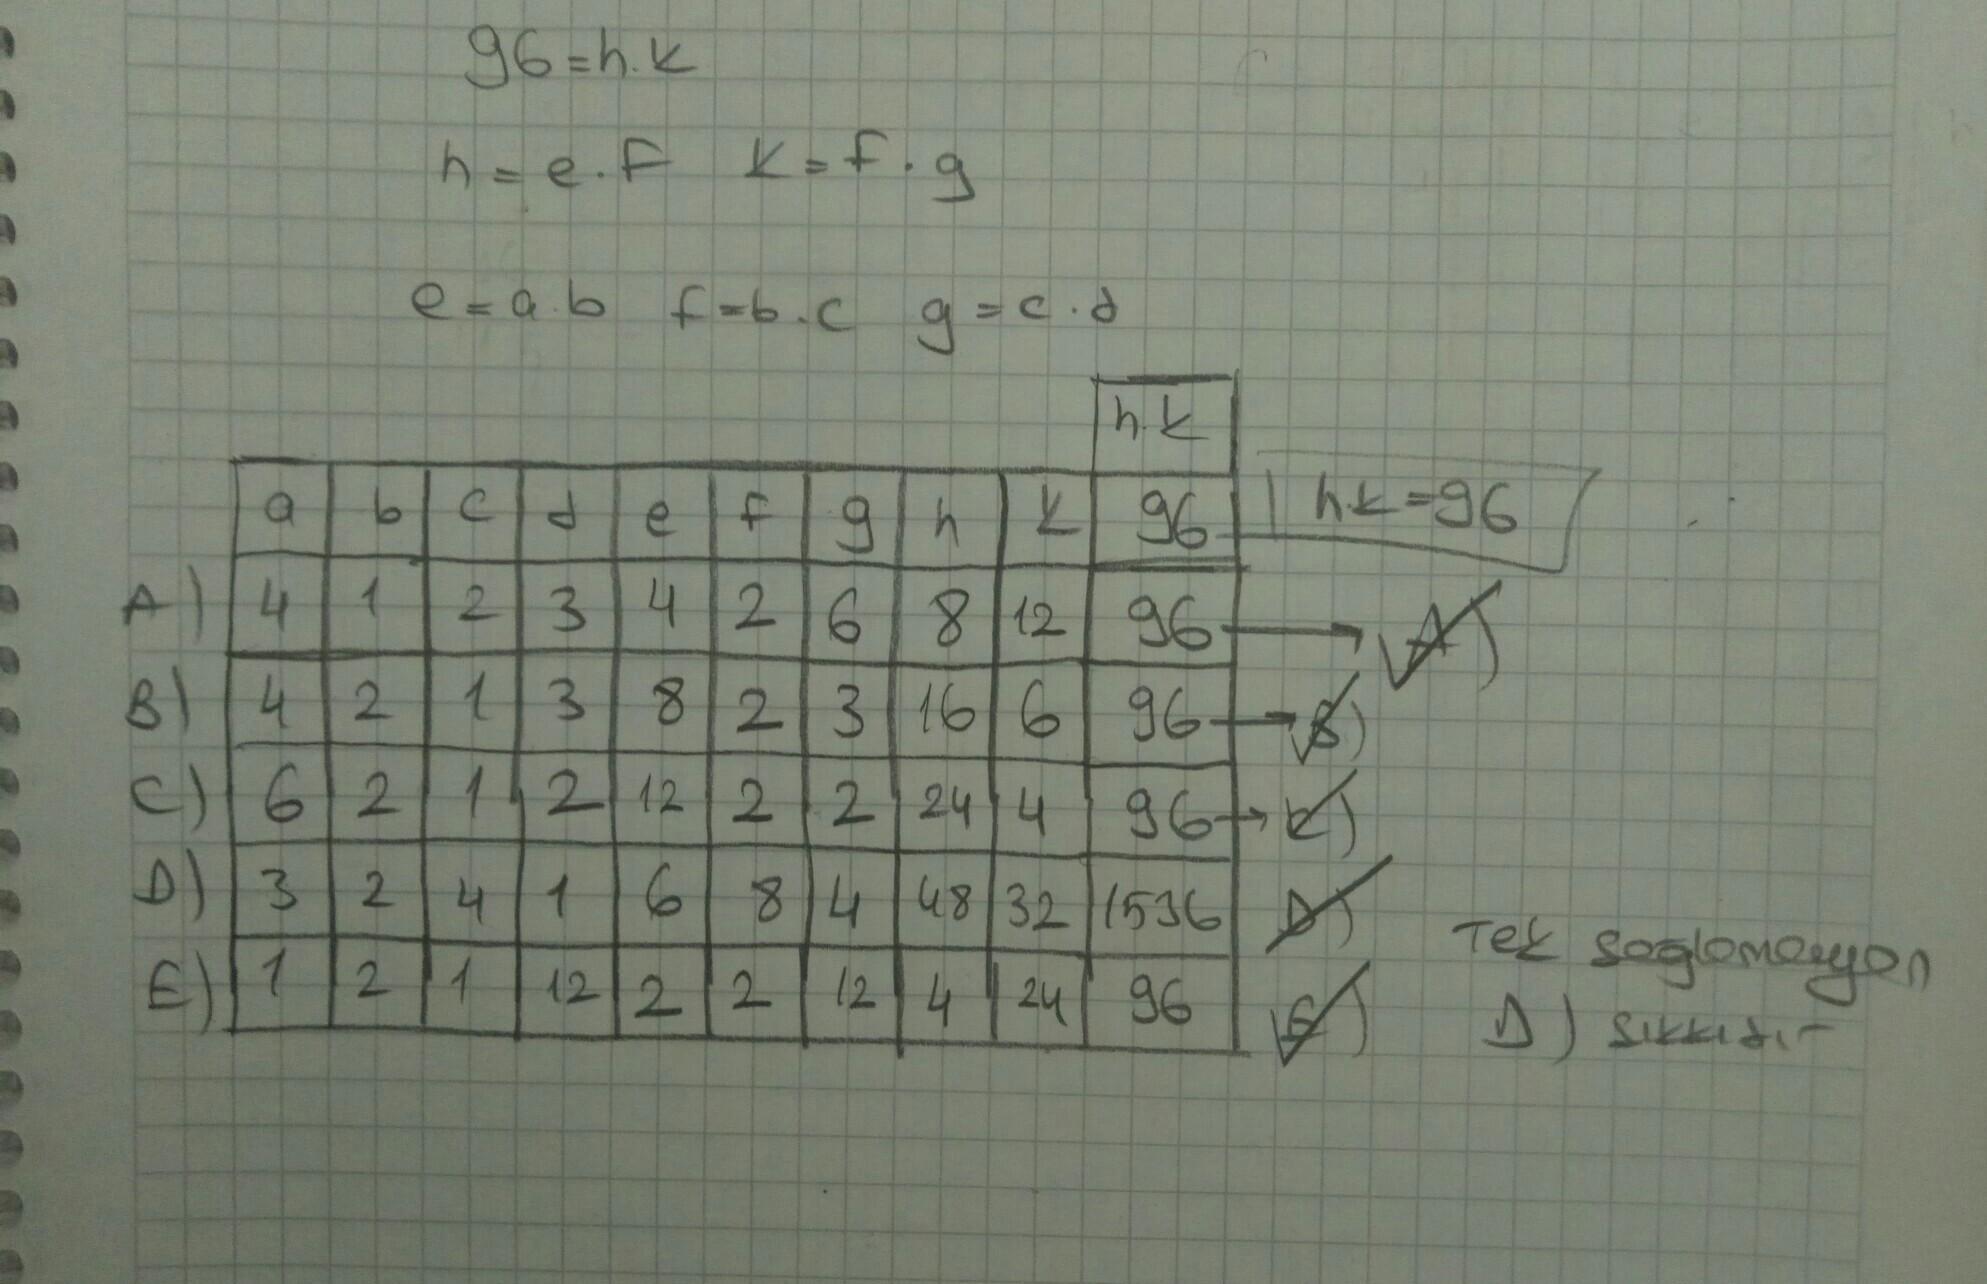 96=h.k
h=e.f k=f.g
e=a.b f=b.c g=c.d
h.k
a b c d e f g h k 96 h.k=96
A) 4 1 2 3 4 2 6 8 12 96 → A)
B) 4 2 1 3 8 2 3 16 6 96 → B)
C) 6 2 1 2 12 2 2 24 4 96 → C)
D) 3 2 4 1 6 8 4 48 32 1536 D) Tek sağlamayan
E) 1 2 1 12 2 2 12 4 24 96 E) D) şıkkıdır